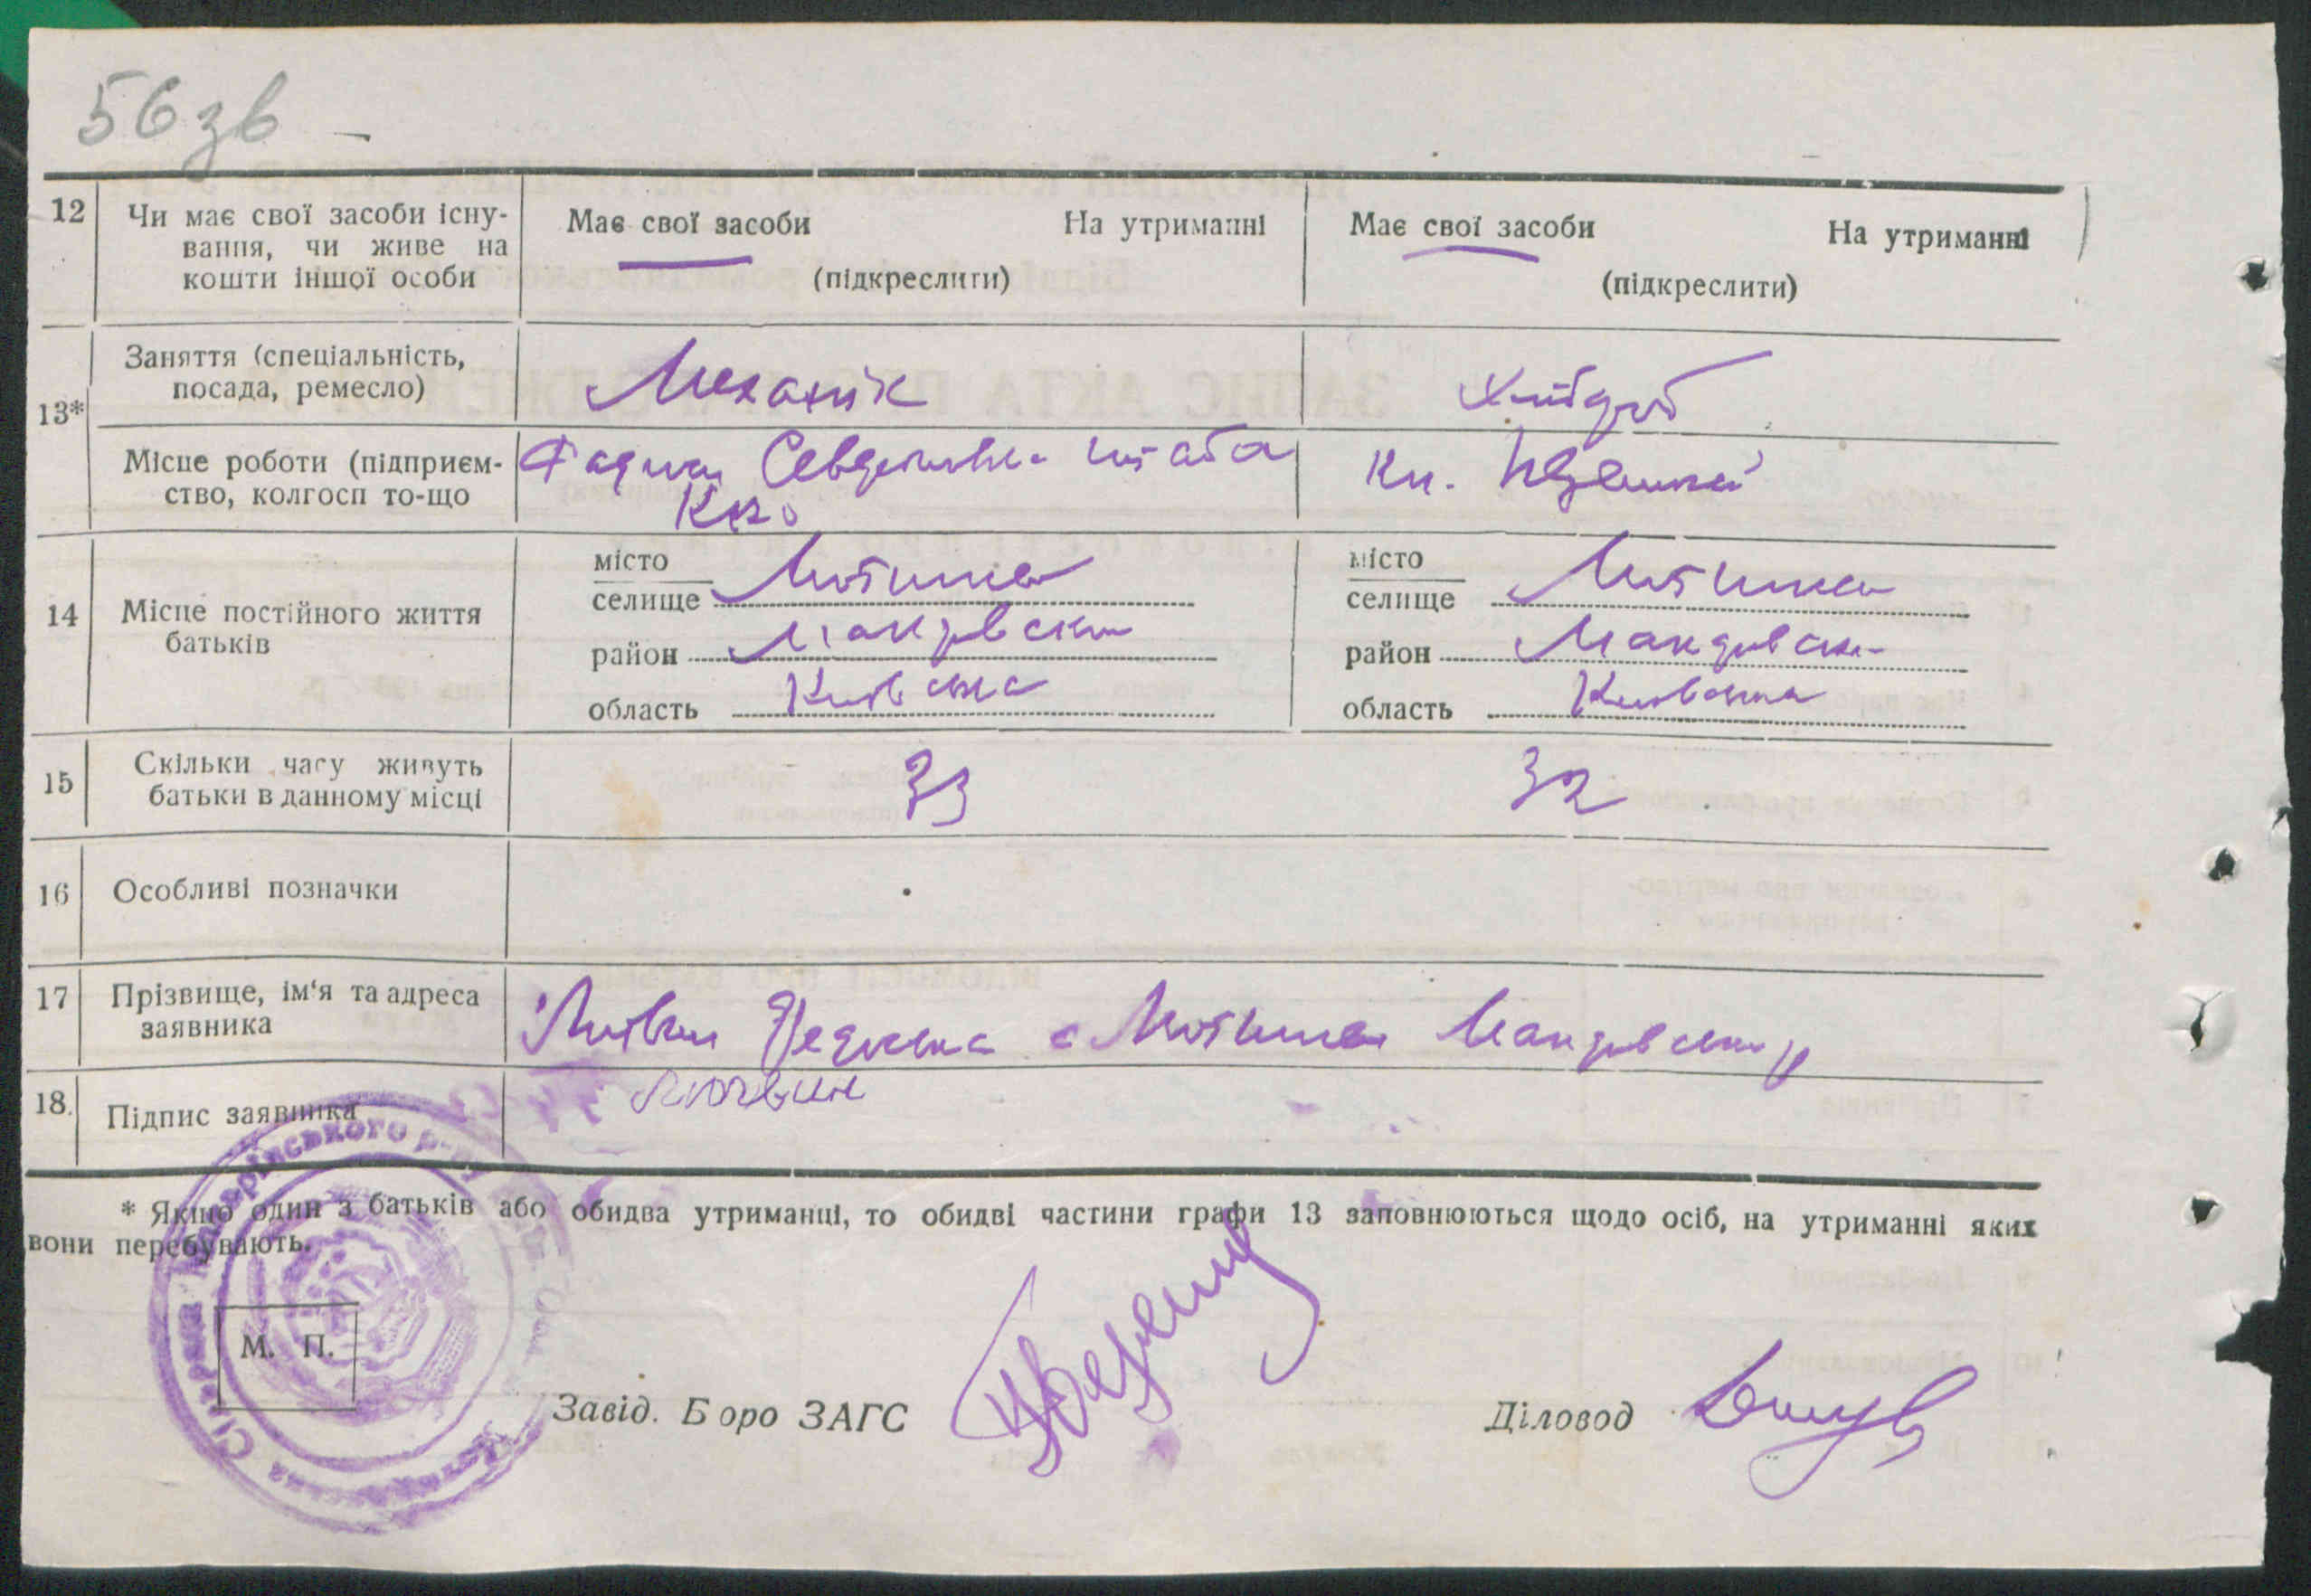 56зв
12 Чи має свої засоби існу-
вання, чи живе на
кошти іншої особи
Має свої засоби На утриманні
(підкреслити)
Має свої засоби На утриманні
(підкреслити)
13*
Заняття (спеціальність,
посада, ремесло)
Механік
Хлібороб
Місце роботи (підприєм-
ство, колгосп то-що
штаба
Кп.
14 Місце постійного життя
батьків
місто
селище Мотижен
район Макарівськи
область Київська
місто
селище Мотижен
район Макарівськи
область Київська
15 Скільки часу живуть
батьки в данному місці
33
32
16 Особливі позначки
17 Прізвище, ім'я та адреса
заявника
Литвин с Мотижен Макарівськ р
18. Підпис заявника
Литвин
* Якщо один з батьків або обидва утриманці, то обидві частини графи 13 заповнюються щодо осіб, на утриманні яких
вони перебувають.
М. П.
Завід. Бюро ЗАГС
Діловод